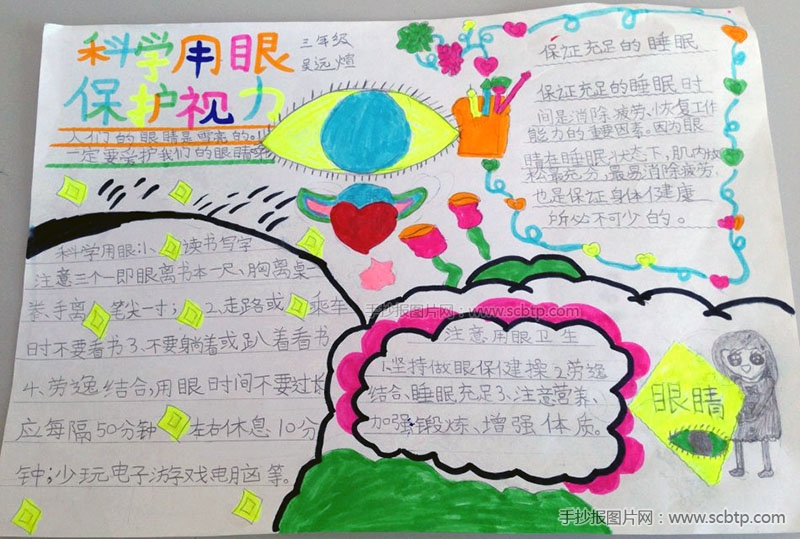 科学用眼
保护视力
三年级
吴远
人们的眼睛是雪亮的。
一定要爱护我们的眼睛
保证充足的睡眠
保证充足的睡眠时
间是消除疲劳、恢复工作
能力的重要因素。因为眼
睛在睡眠状态下,肌肉
松最充分,最易消除疲劳,
也是保证身体健康
所必不可少的。
科学用眼:1、读书写字
注意三个一即眼离书本一尺、胸离桌一
拳、手离笔尖一寸;2、走路或乘车
时不要看书3、不要躺着或趴着看书
4、劳逸结合,用眼时间不要过长
应每隔50分钟左右休息10分
钟;少玩电子游戏电脑等。
手抄报图片网:www.scbtp.com
注意用眼卫生
1.坚持做眼保健操2.劳逸
结合、睡眠充足3、注意营养、
加强锻炼、增强体质。
眼睛
手抄报图片网:www.scbtp.com